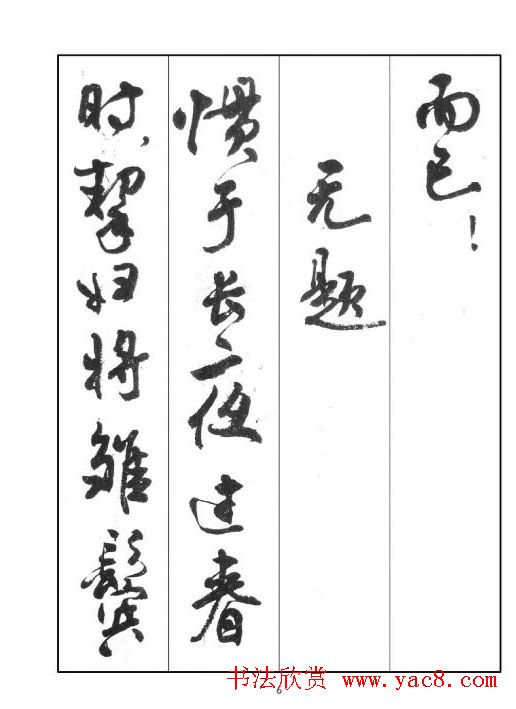 而已！
无题
惯于长夜过春
时，挈妇将雏鬓
书法欣赏 www.yac8.com
6